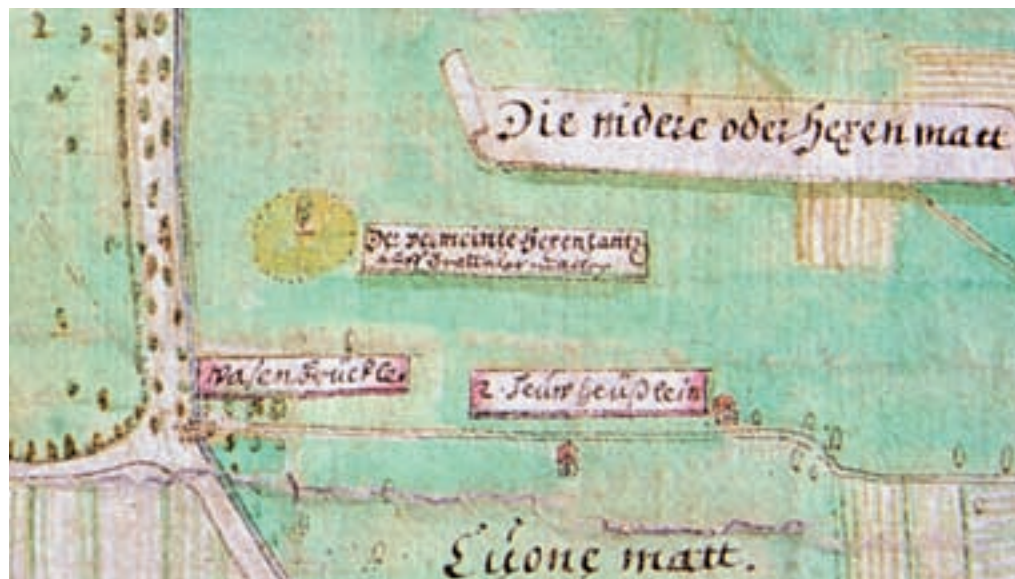 Die nidere oder Hexen matt
Der vermeinte Hexentantz
auff Bratteler
Wasen brückle.
2. Feürr heüßlein
matt.